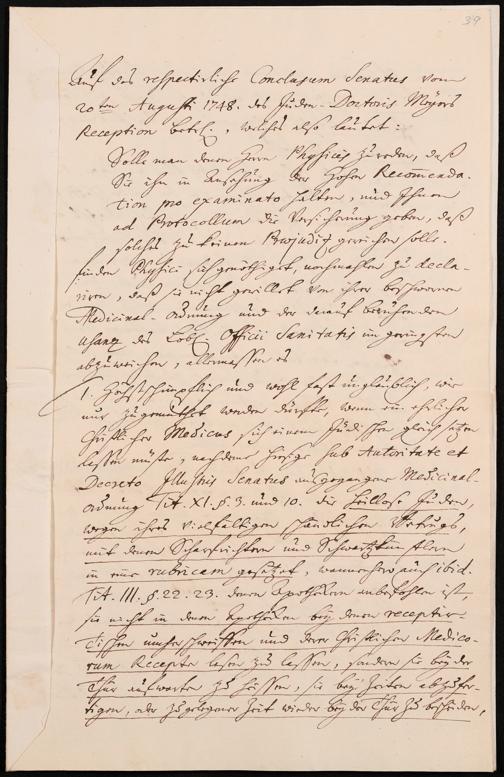 39
Auf das respectirliche Conclusum Senatus vom
20ten Augusti 1748. des Juden-Doctoris Moyses
Reception betr., welches also lautet:
Solle man denen Herrn Physicis zureden, daß
Sie ihn in Ansehung der hohen Recomenda-
tion pro examinato halten, und Ihnen
ad Protocollum die Versicherung geben, daß
solches zu keinem Præjudiz gereichen solle.
finden Physici sich genöthiget, nochmahlen zu decla-
riren, daß sie nicht gewillet von ihrer beschwornen
Medicinal-Ordnung und der darauf beruhenden
Usanz des Löbl. Officii Sanitatis im geringsten
abzuweichen, allermassen es
1. Höchst schimpflich und wohl fast unglaublich, wie
nur zugemuthet werden dürffte, wenn ein ehrlicher
Christlicher Medicus, sich einem Jüdischen gleich setzen
lassen müste, nachdeme hiesige sub Autoritate et
Decreto Illustris Senatus ausgegangene Medicinal-
ordnung Tit. XI. §. 3. und 10. die heillose Juden,
wegen ihres vielfältigen schändlichen Betrugs,
mit denen Scharfrichtern und Schwartzkünstlern
in eine rubricam gesetzet, wannenhero auch ibid.
Tit. III. §. 22. 23. denen Apothekern anbefohlen ist,
sie nicht in denen Apotheken bey denen receptir-
Tischen umher schweiffen und derer Christlichen Medico-
rum Recepte lesen zu lassen, sondern sie bey der
Thür aufwarten zu heissen, sie bey Zeiten abzufer-
tigen, oder zu gelegener Zeit wieder bey der Thür zu bescheiden,